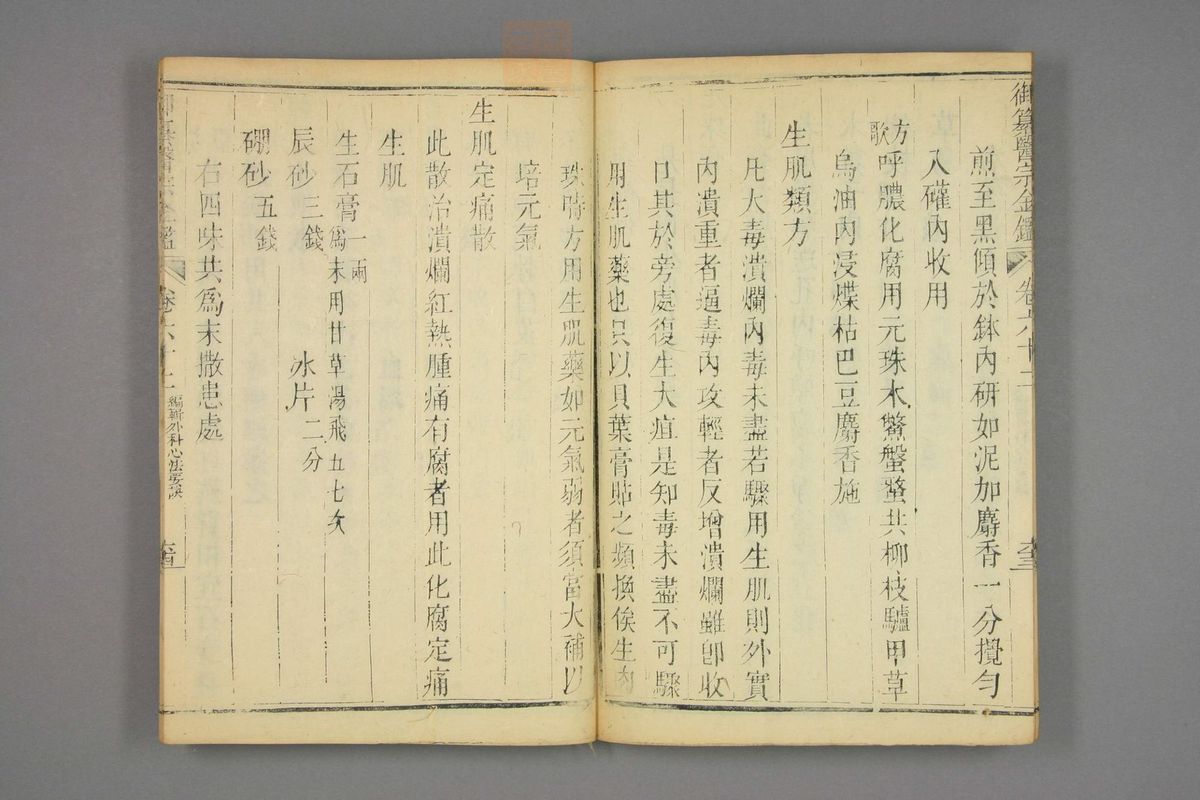 御纂醫宗金鑑 卷六十二
煎至黑傾於鉢內研如泥加麝香一分攪勻
入礶內收用
方歌 呼膿化腐用元珠木鱉盤蝥共柳枝驢甲草
烏油內浸煠枯巴豆麝香施
生肌類方
凡大毒潰爛內毒未盡若驟用生肌則外實
內潰重者逼毒內攻輕者反增潰爛雖卽收
口其於旁處復生大疽是知毒未盡不可驟
用生肌藥也只以貝葉膏貼之頻換俟生肉
珠時方用生肌藥如元氣弱者須當大補以
培元氣
生肌定痛散
此散治潰爛紅熱腫痛有腐者用此化腐定痛
生肌
生石膏一兩為末用甘草湯飛五七次
辰砂三錢 冰片二分
硼砂五錢
右四味共爲末撒患處
卷六十二 編輯外科心法要訣